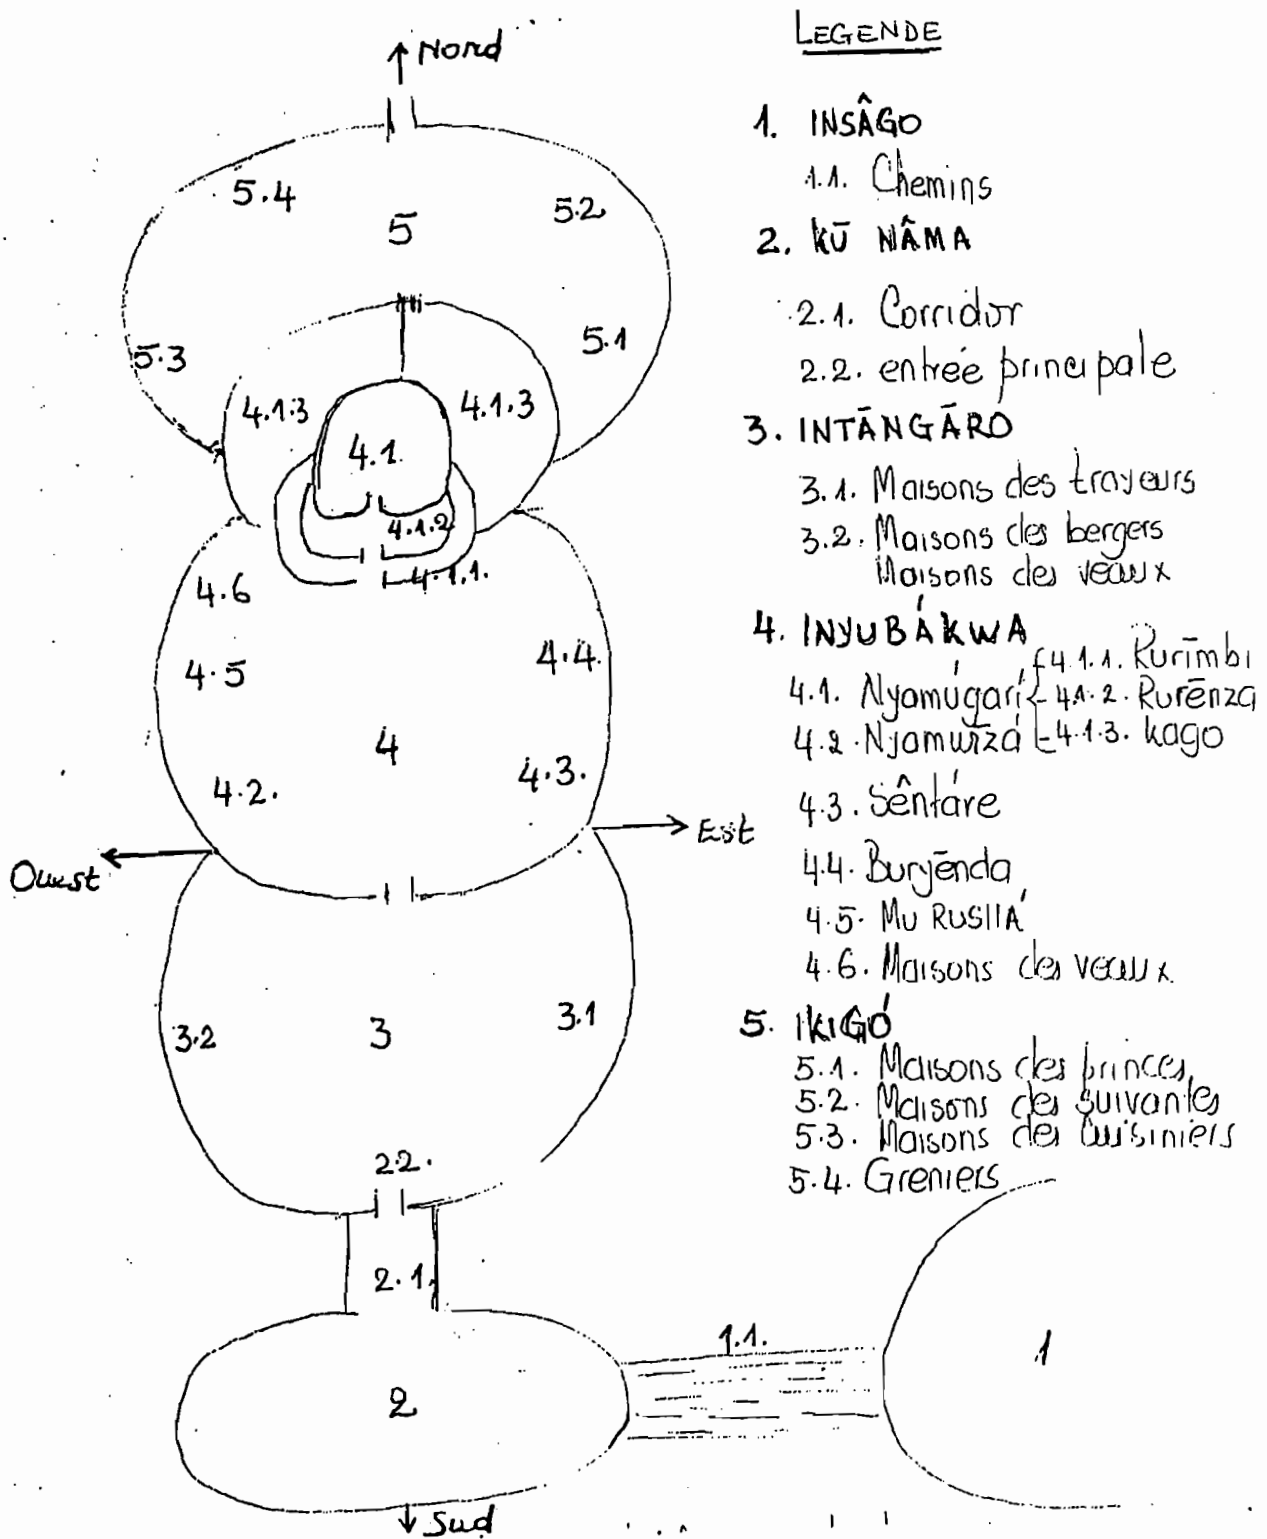 Nord
5.4
5
5.2
5.3
5.1
4.1.3
4.1.3
4.1.
4.1.2
4.1.1.
4.6
4.5
4.4.
4
4.2.
4.3.
Ouest
Est
3.2
3
3.1
2.2.
2.1.
2
1.1.
1
Sud
LEGENDE
1. INSÂGO
1.1. Chemins
2. KŪ NÂMA
2.1. Corridor
2.2. entrée principale
3. INTĀNGĀRO
3.1. Maisons des trayeurs
3.2. Maisons des bergers
Maisons des veaux
4. INYUBÁKWA
4.1. Nyamúgarí 4.1.1. Rurīmbi
4.1.2. Rurēnza
4.2. Nyamwīzá 4.1.3. kago
4.3. Sêntáre
4.4. Buryēnda
4.5. MU RUSIIÁ
4.6. Maisons des veaux
5. IKIGÓ
5.1. Maisons des princes
5.2. Maisons des suivantes
5.3. Maisons des cuisiniers
5.4. Greniers